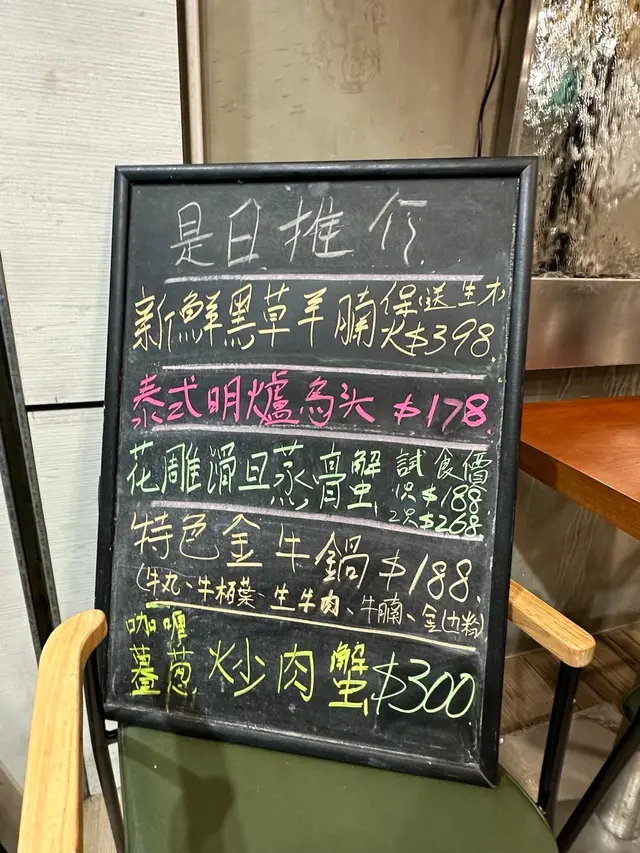 是日推介
新鮮黑草羊腩煲(送生菜
$398
泰式明爐烏头 $178
花雕滑旦蒸膏蟹 試食價
1只$188
2只$268
特色金牛鍋 $188
(牛丸、牛栢葉、生牛肉、牛腩、金山粉
咖喱
薑蔥 炒肉蟹 $300